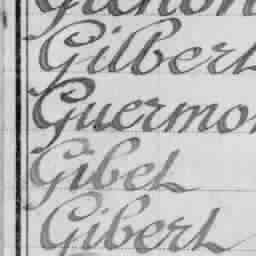 Gilbert
Guermo
Gibet
Gibert